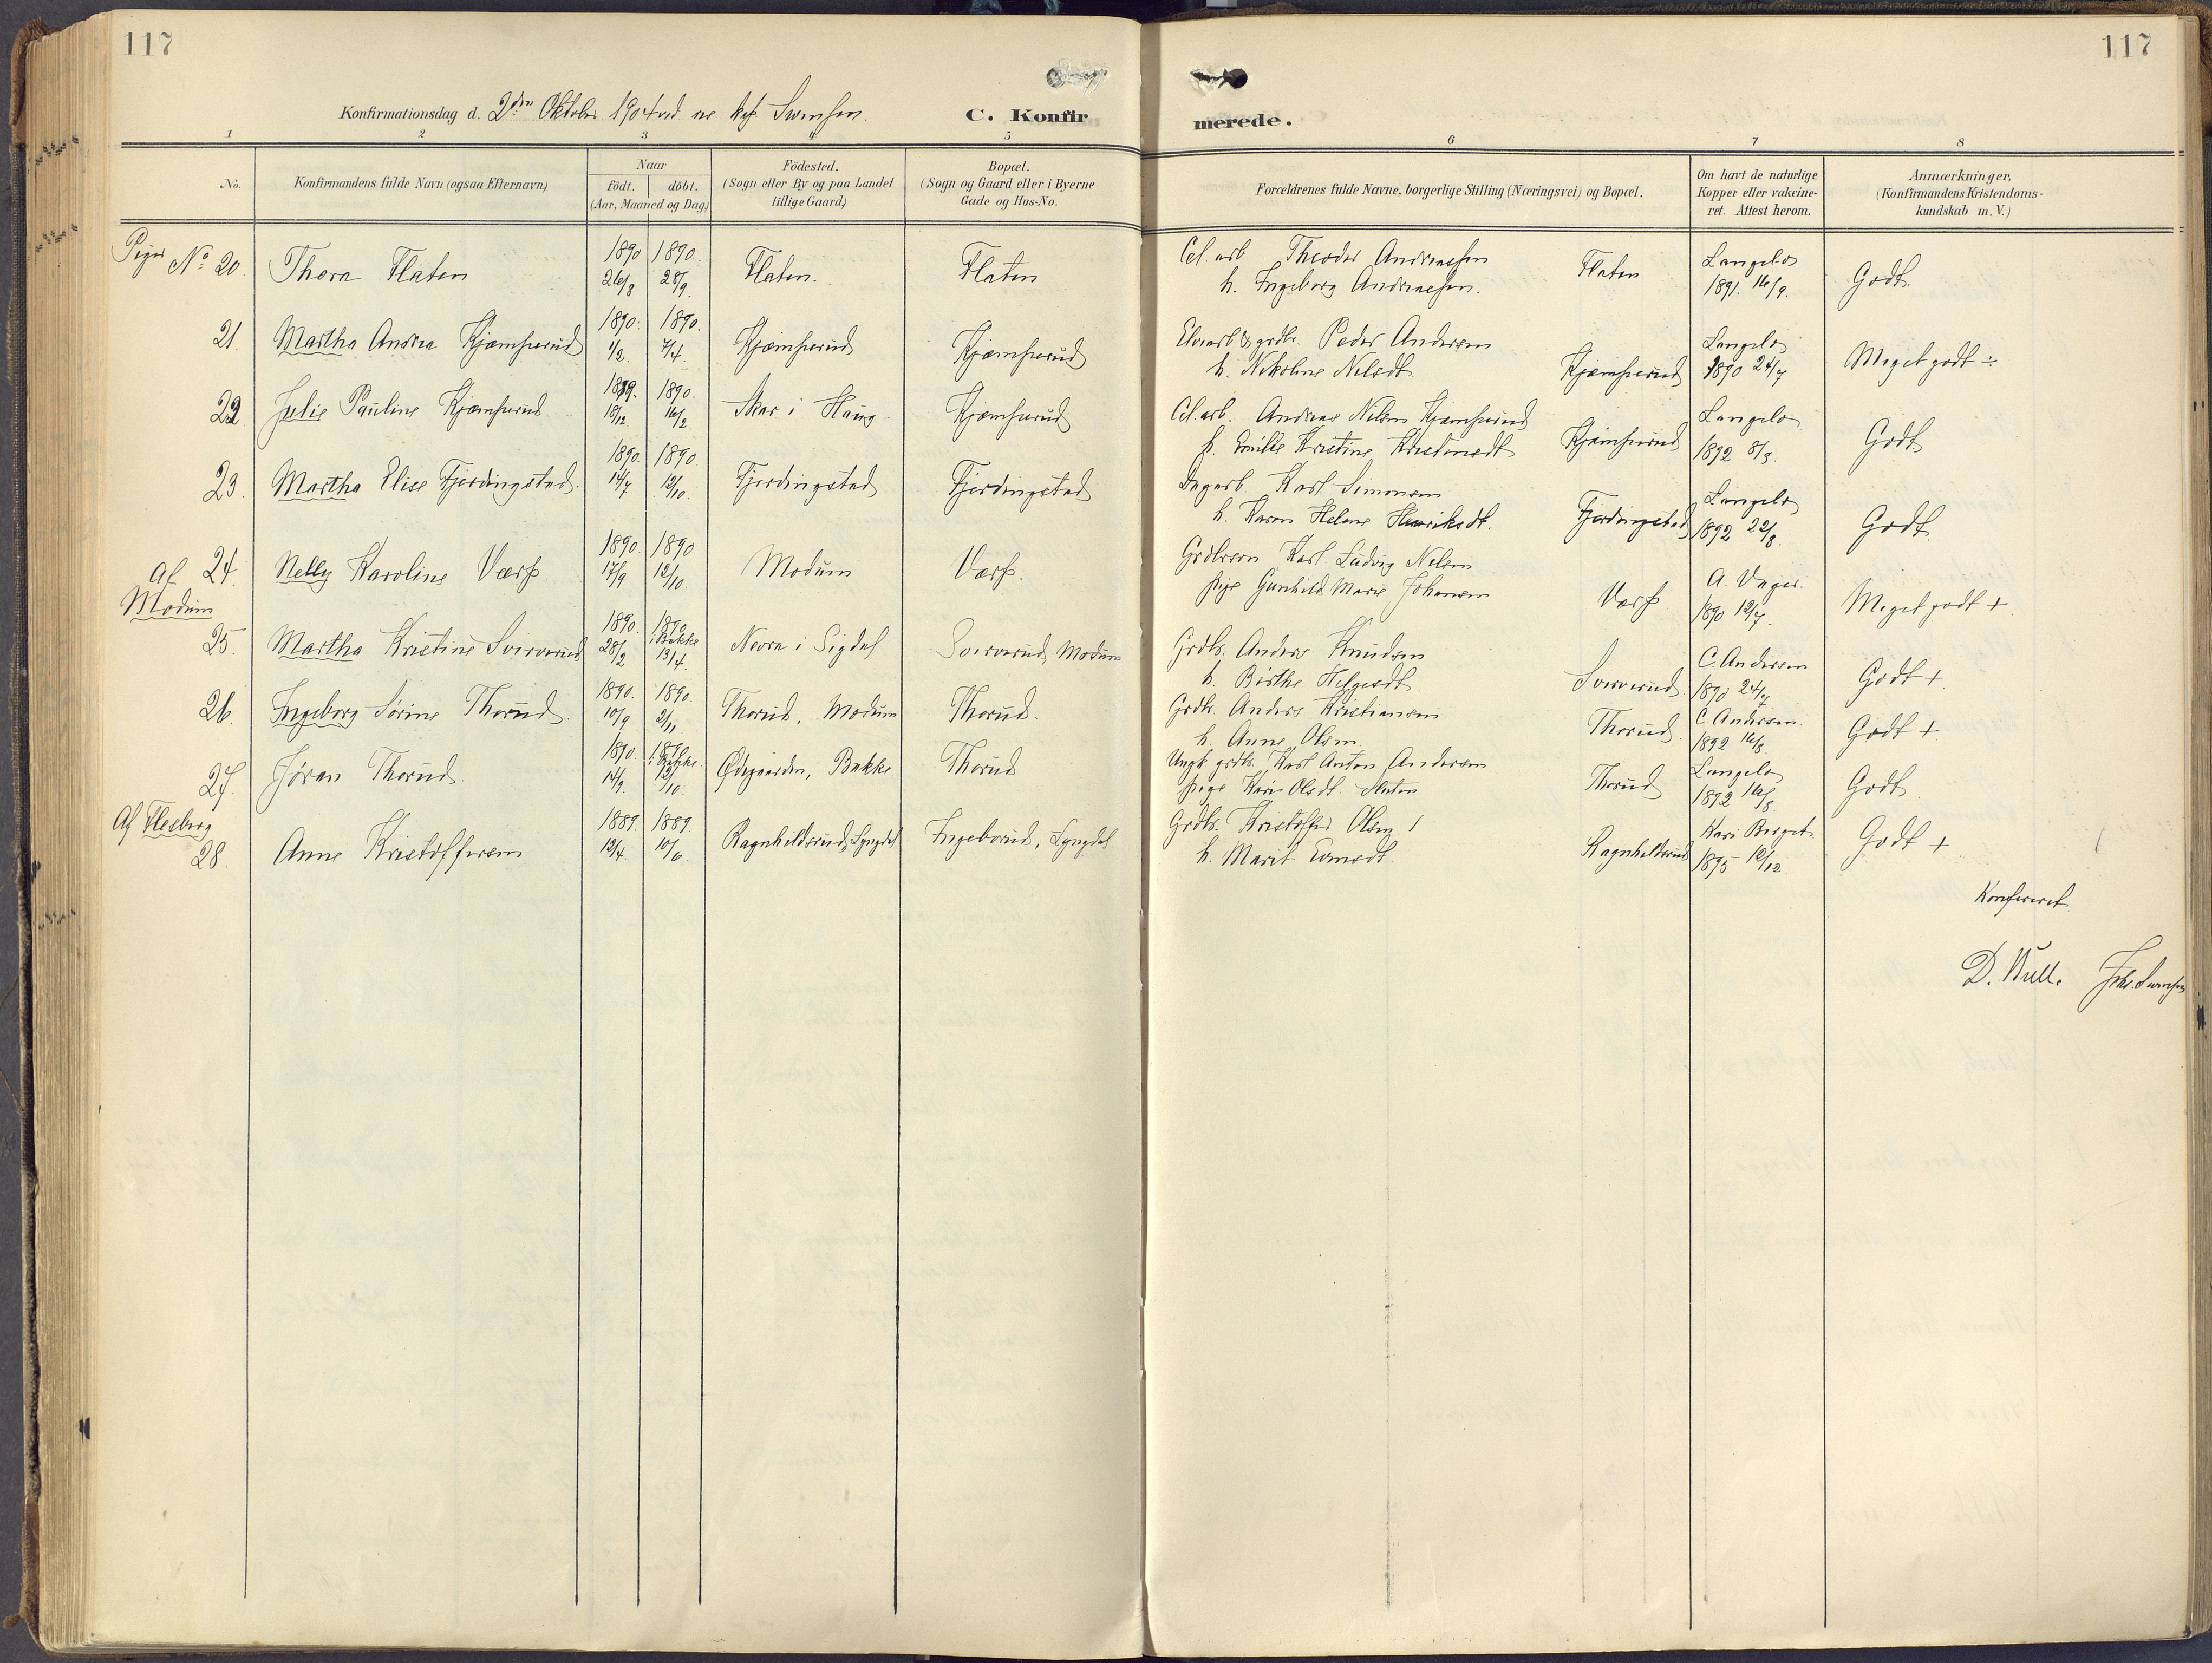 117
117
Konfirmationsdag d. 2den Oktober 1904 ved
C. Konfir
merede.
1 2 3 4 5 6 7 8
No.
Konfirmandens fulde Navn (ogsaa Efternavn)
Naar
födt. döbt.
(Aar, Maaned og Dag)
Födested.
(Sogn eller By og paa Landet
tillige Gaard)
Bopæl.
(Sogn og Gaard eller i Byerne
Gade og Hus-No.
Forældrenes fulde Navne, borgerlige Stilling (Næringsvei) og Bopæl.
Om havt de naturlige
Kopper eller vakcine-
ret. Attest herom.
Anmærkninger,
(Konfirmandens Kristendoms-
kundskab m. V.)
Piger No 20. Thora Flaten 1890 26/8 1890. 28/9. Flaten. Flaten
Cel. arb Theodor Andreassen
h. Ingeborg Andreassen. Flaten Langelo 1891. 16/9. Godt
21. Martha Andrea Kjæmperud 1890. 1/2. 1890. 7/4. Kjæmperud Kjæmperud
Elvearb & grdbr. Peder Andersen
h. Nikoline Nilsdt. Kjæmperud Langelo 1890 24/7 Meget godt ÷
22. Julie Pauline Kjæmperud 1889. 18/12. 1890. 16/2. Skar i Haug Kjæmperud
Cel. arb. Andreas Nilsen Kjæmperud
h. Emilie Kristine Kristensdt Kjæmperud Langelo 1892 8/8. Godt
23. Martha Elise Fjerdingstad. 1890. 14/7 1890. 12/10. Fjerdingstad Fjerdingstad
Dagarb Karl Simonsen
h. Karen Helene Henriksdt. Fjerdingstad Langelo 1892 22/8. Godt
Af Modum
24. Nelly Karoline Værp 1890. 17/9 1890 12/10. Modum Værp.
Grdbrsøn Karl Ludvig Nilsen
pige Gunhild Marie Johansen Værp A. 1890 12/7. Meget godt +
25. Martha Kristine Sververud 1890. 28/2 1890 i Bakke 13/4. Nevra i Sigdal Sververud, Modum
Grdbr. Anders Knudsen
h. Birthe Helgesdt. Sververud. C. Andersen 1890 24/7 Godt +
26. Ingeborg Sørine Thorud. 1890. 10/9 1890. 2/11 Thorud, Modum Thorud.
Grdbr. Anders Kristiansen
h. Anne Olsen Thorud C. Andersen. 1892 16/8. Godt +
27. Jøran Thorud. 1890. 14/9. 1890 i Bakke 12/10. Ødegaarden, Bakke Thorud
Ungk grdbr. Karl Anton Andersen
pige Kari Olsdt. Thorud Langelo 1892 16/8. Godt
Af Flesberg
28. Anne Kristoffersen 1889. 12/4. 1889. 10/6. Ragnhildsrud, Lyngdal Ingeborud, Lyngdal
Grdbr. Kristoffer Olsen
h. Marit Evensdt Ragnhildsrud Kari Berget 1895 12/12 Godt +
Konfereret.
D. Wull. Joh. Svensen